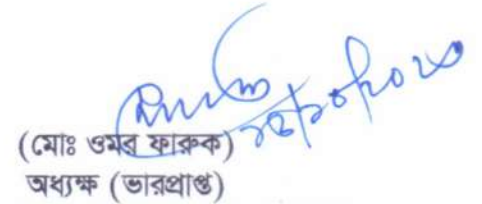 (মোঃ ওমর ফারুক)
অধ্যক্ষ (ভারপ্রাপ্ত)